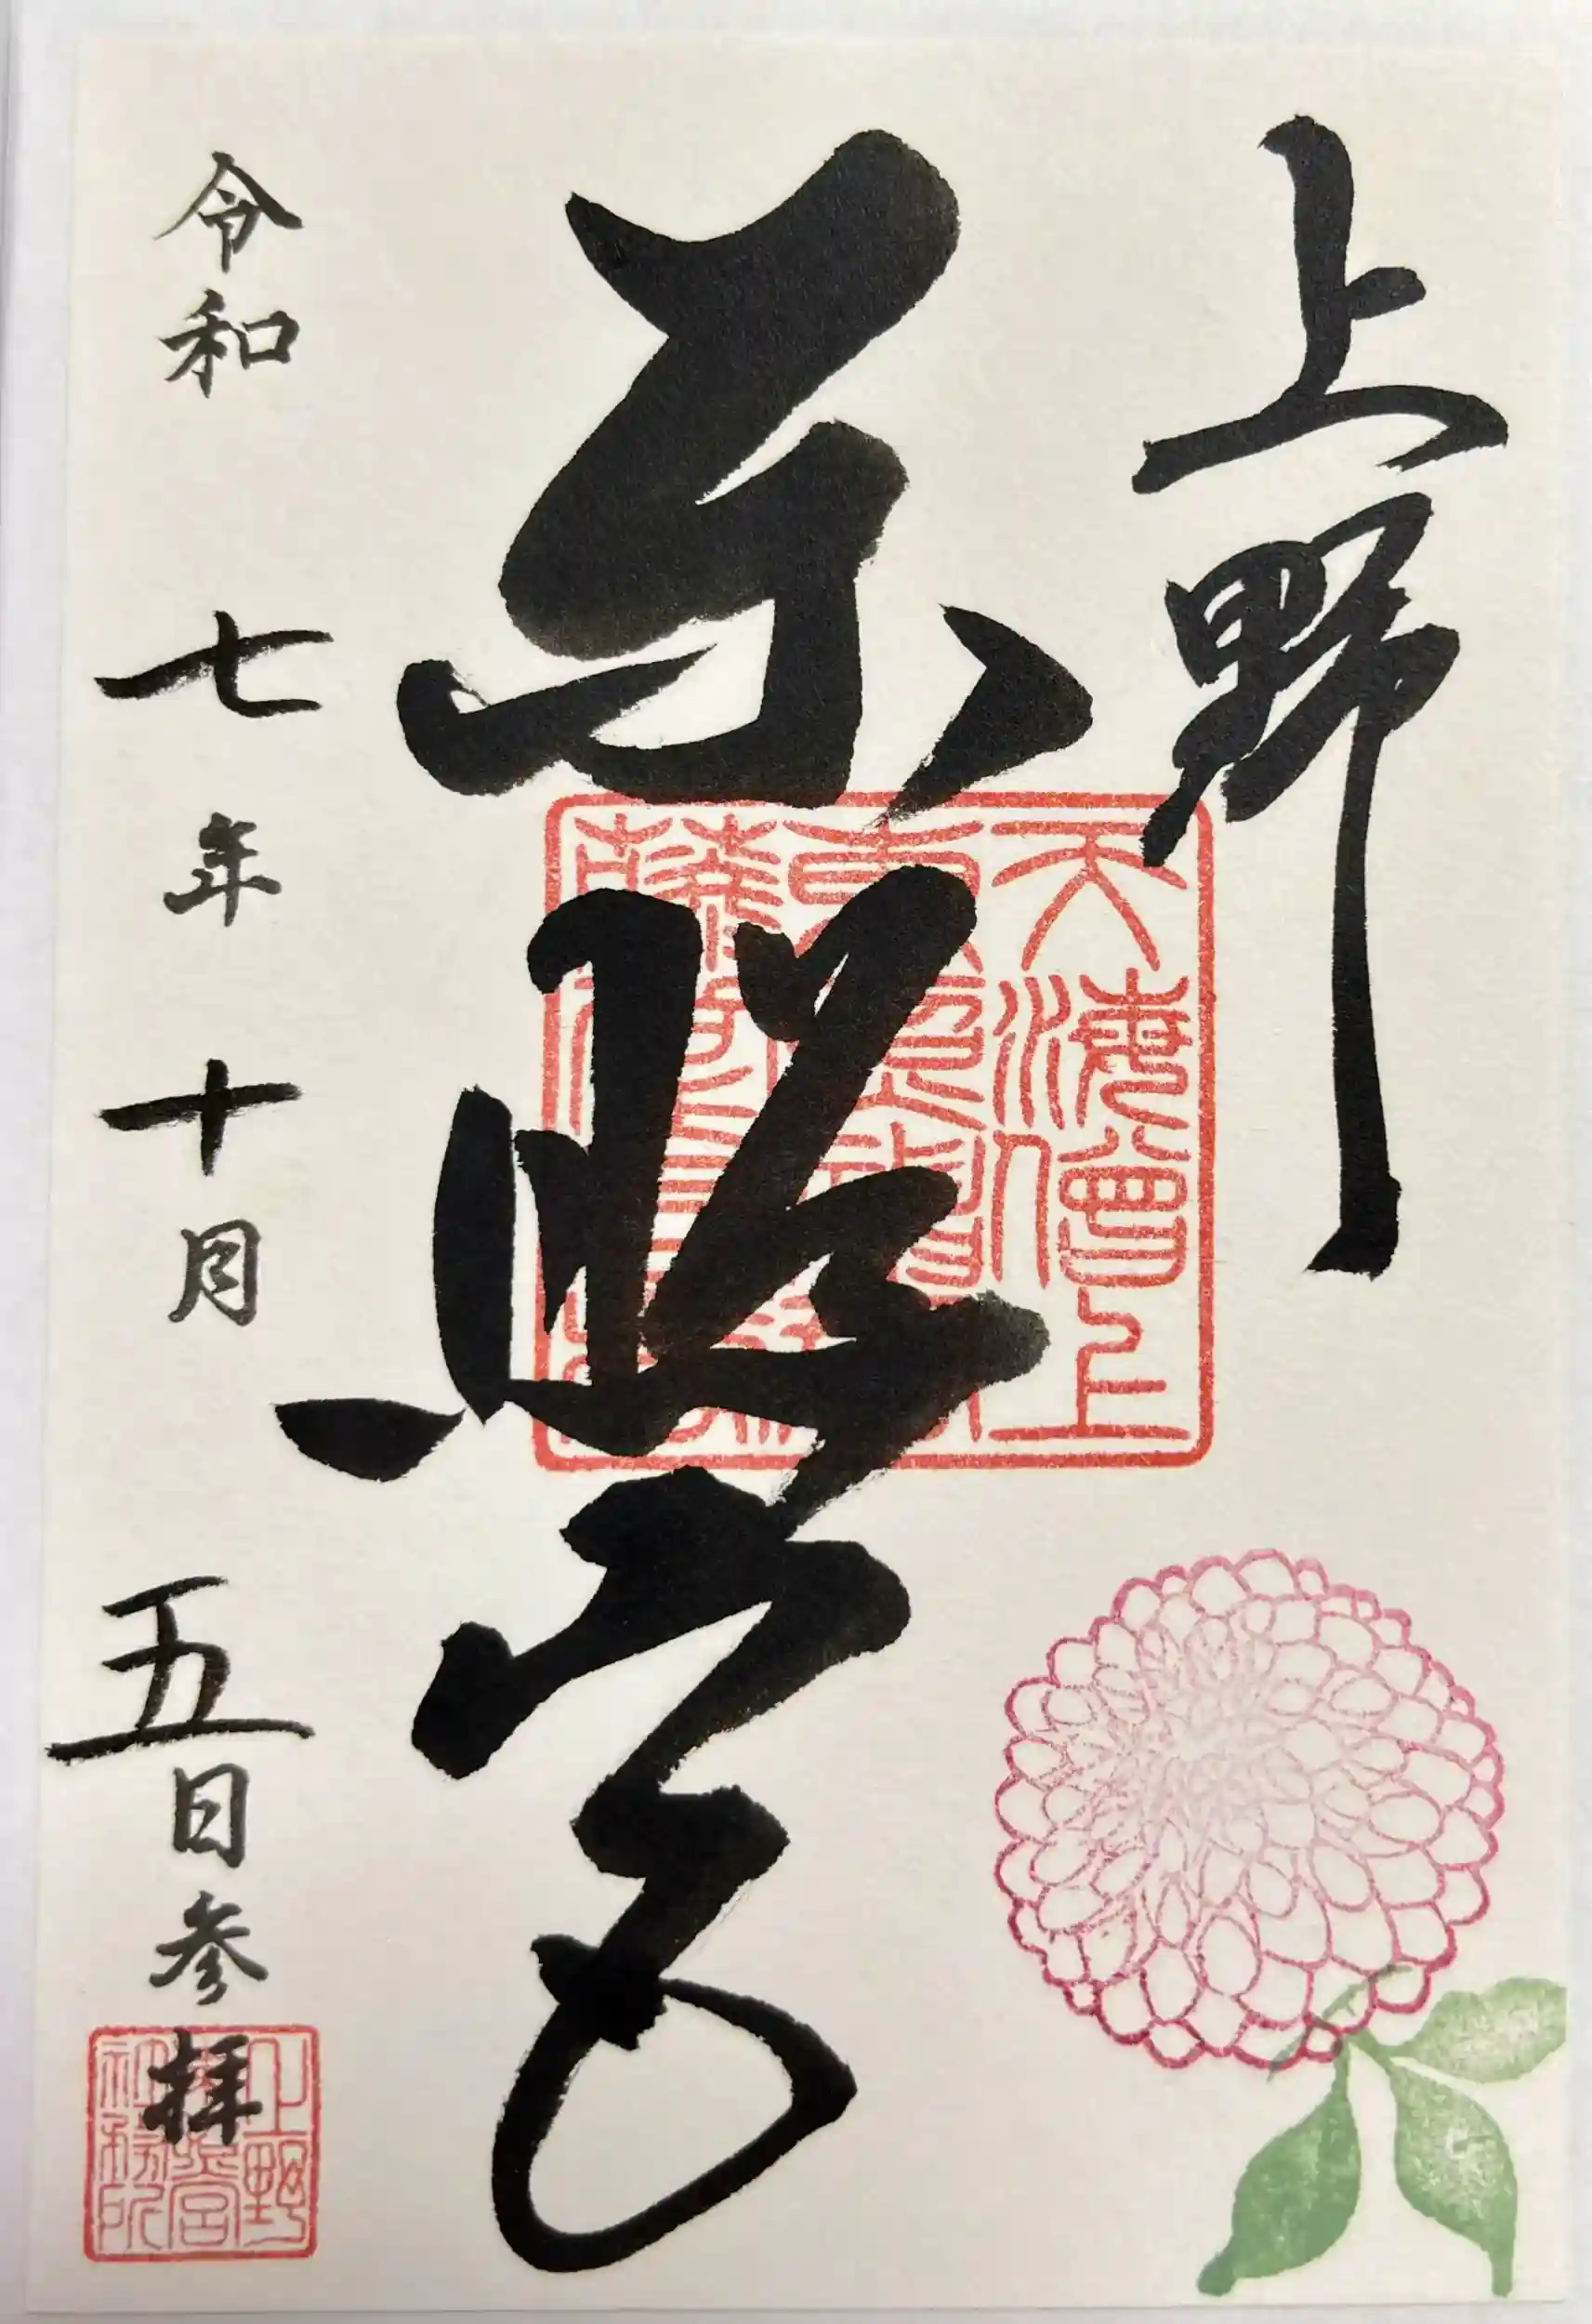 上野
東照宮
天海僧上
令和 七年 十月 五日参拝
上野
東照宮
社務所